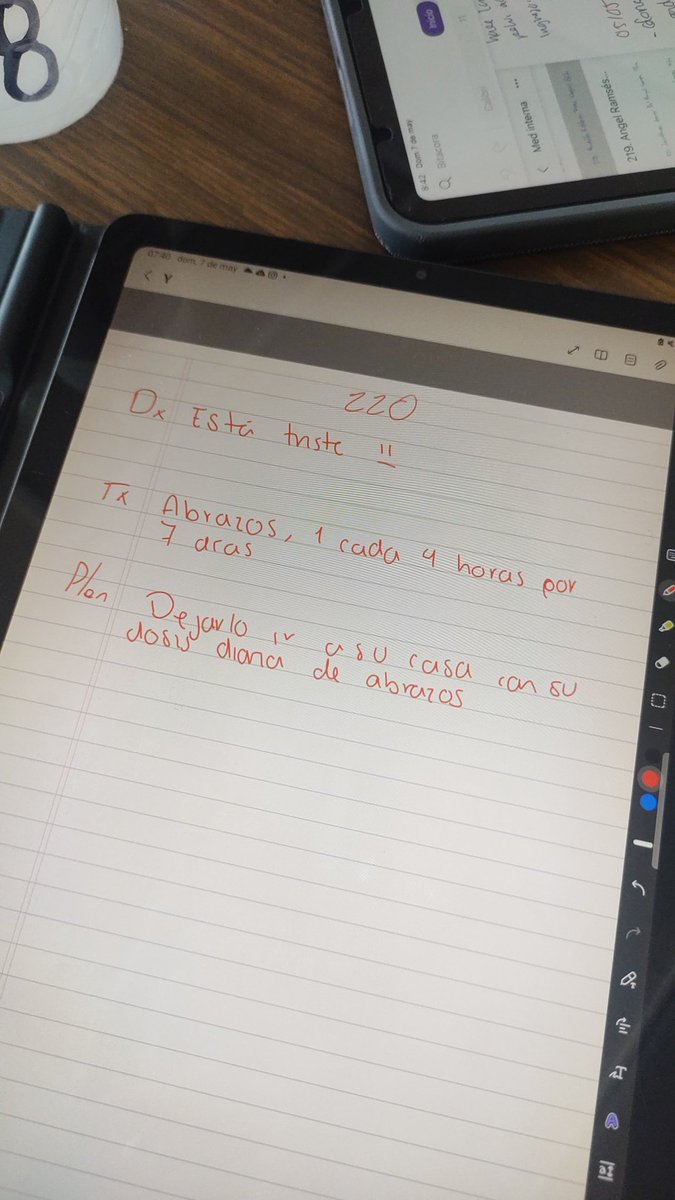 8
Inicio
8:42 Dom 7 de may
Bitacora
Med interna
219. Angel Ramsés...
05/05
07:40 dom. 7 de may
Y
220
Dx Está triste !!
Tx Abrazos, 1 cada 4 horas por
7 dias
Plan Dejarlo ir a su casa con su
dosis diaria de abrazos